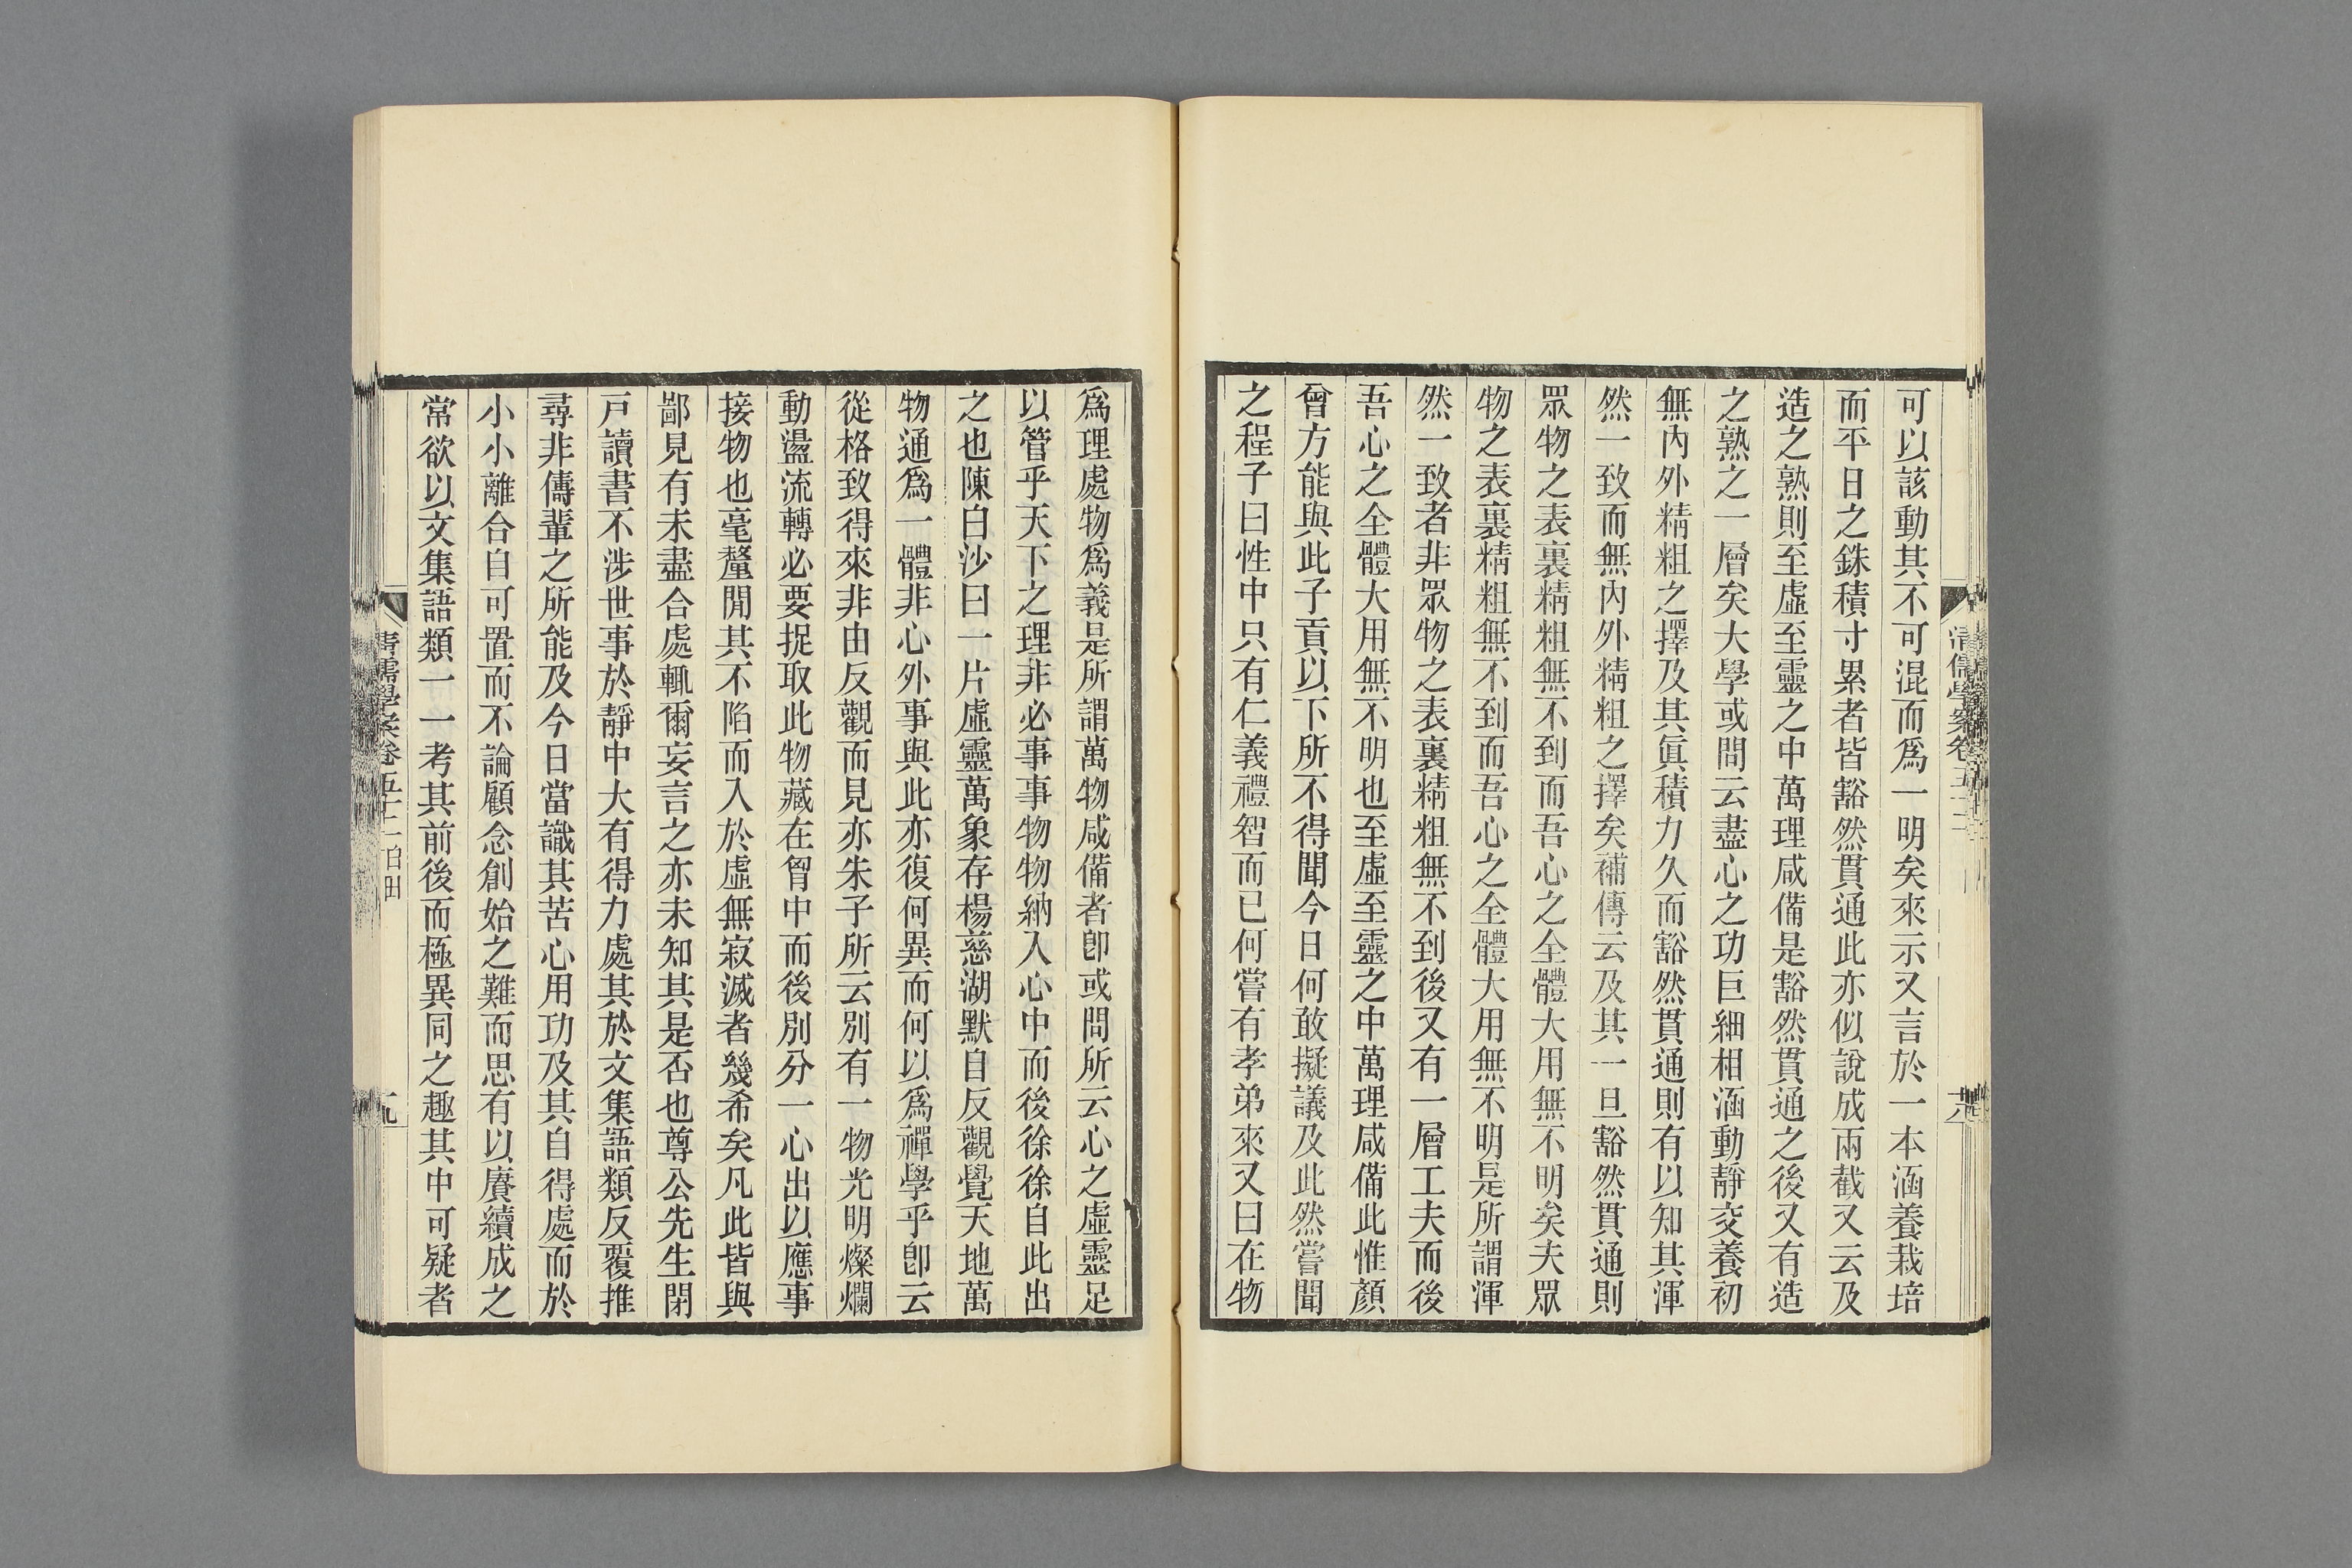 可以該動其不可混而爲一明矣來示又言於一本涵養栽培
而平日之銖積寸累者皆豁然貫通此亦似說成兩截又云及
造之熟則至虛至靈之中萬理咸備是豁然貫通之後又有造
之熟之一層矣大學或問云盡心之功巨細相涵動靜交養初
無內外精粗之擇及其眞積力久而豁然貫通則有以知其渾
然一致而無內外精粗之擇矣補傳云及其一旦豁然貫通則
眾物之表裏精粗無不到而吾心之全體大用無不明矣夫眾
物之表裏精粗無不到而吾心之全體大用無不明是所謂渾
然一致者非眾物之表裏精粗無不到後又有一層工夫而後
吾心之全體大用無不明也至虛至靈之中萬理咸備此惟顏
曾方能與此子貢以下所不得聞今日何敢擬議及此然嘗聞
之程子曰性中只有仁義禮智而已何嘗有孝弟來又曰在物
清儒學案卷五十二
爲理處物爲義是所謂萬物咸備者卽或問所云心之虛靈足
以管乎天下之理非必事事物物納入心中而後徐徐自此出
之也陳白沙曰一片虛靈萬象存楊慈湖默自反觀覺天地萬
物通爲一體非心外事與此亦復何異而何以爲禪學乎卽云
從格致得來非由反觀而見亦朱子所云別有一物光明燦爛
動盪流轉必要捉取此物藏在胷中而後別分一心出以應事
接物也毫釐閒其不陷而入於虛無寂滅者幾希矣凡此皆與
鄙見有未盡合處輒爾妄言之亦未知其是否也尊公先生閉
戸讀書不涉世事於靜中大有得力處其於文集語類反覆推
尋非儔輩之所能及今日當識其苦心用功及其自得處而於
小小離合自可置而不論顧念創始之難而思有以賡續成之
常欲以文集語類一一考其前後而極異同之趣其中可疑者
清儒學案卷五十二 白田